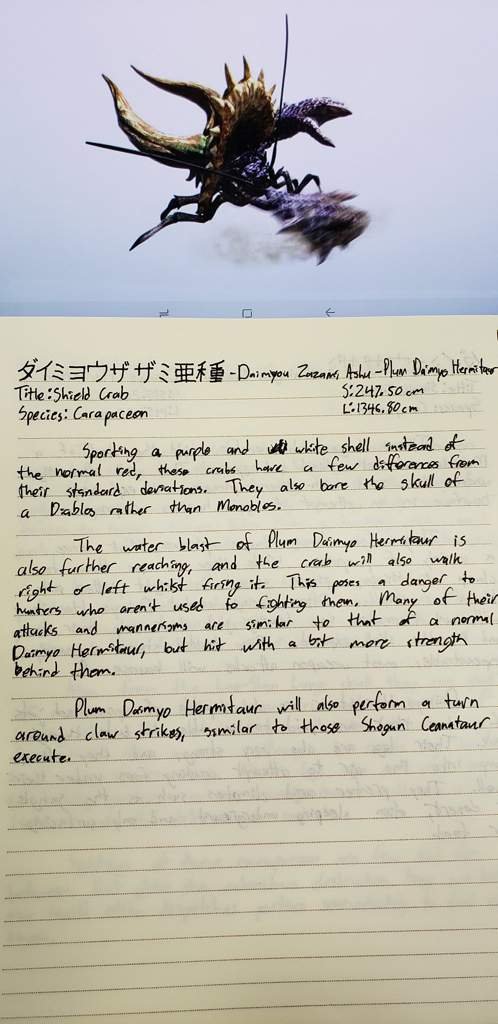 ダイミョウザザミ亜種 - Daimyou Zazami Ashu - Plum Daimyo Hermitaur
Title: Shield Crab S: 247.50 cm
Species: Carapaceon L: 1346.80 cm
Sporting a purple and white shell instead of
the normal red, these crabs have a few differences from
their standard deviations. They also bare the skull of
a Diablos rather than Monoblos.
The water blast of Plum Daimyo Hermitaur is
also further reaching, and the crab will also walk
right or left whilst firing it. This poses a danger to
hunters who aren't used to fighting them. Many of their
attacks and mannerisms are similar to that of a normal
Daimyo Hermitaur, but hit with a bit more strength
behind them.
Plum Daimyo Hermitaur will also perform a turn
around claw strikes, similar to those Shogun Ceanataur
execute.